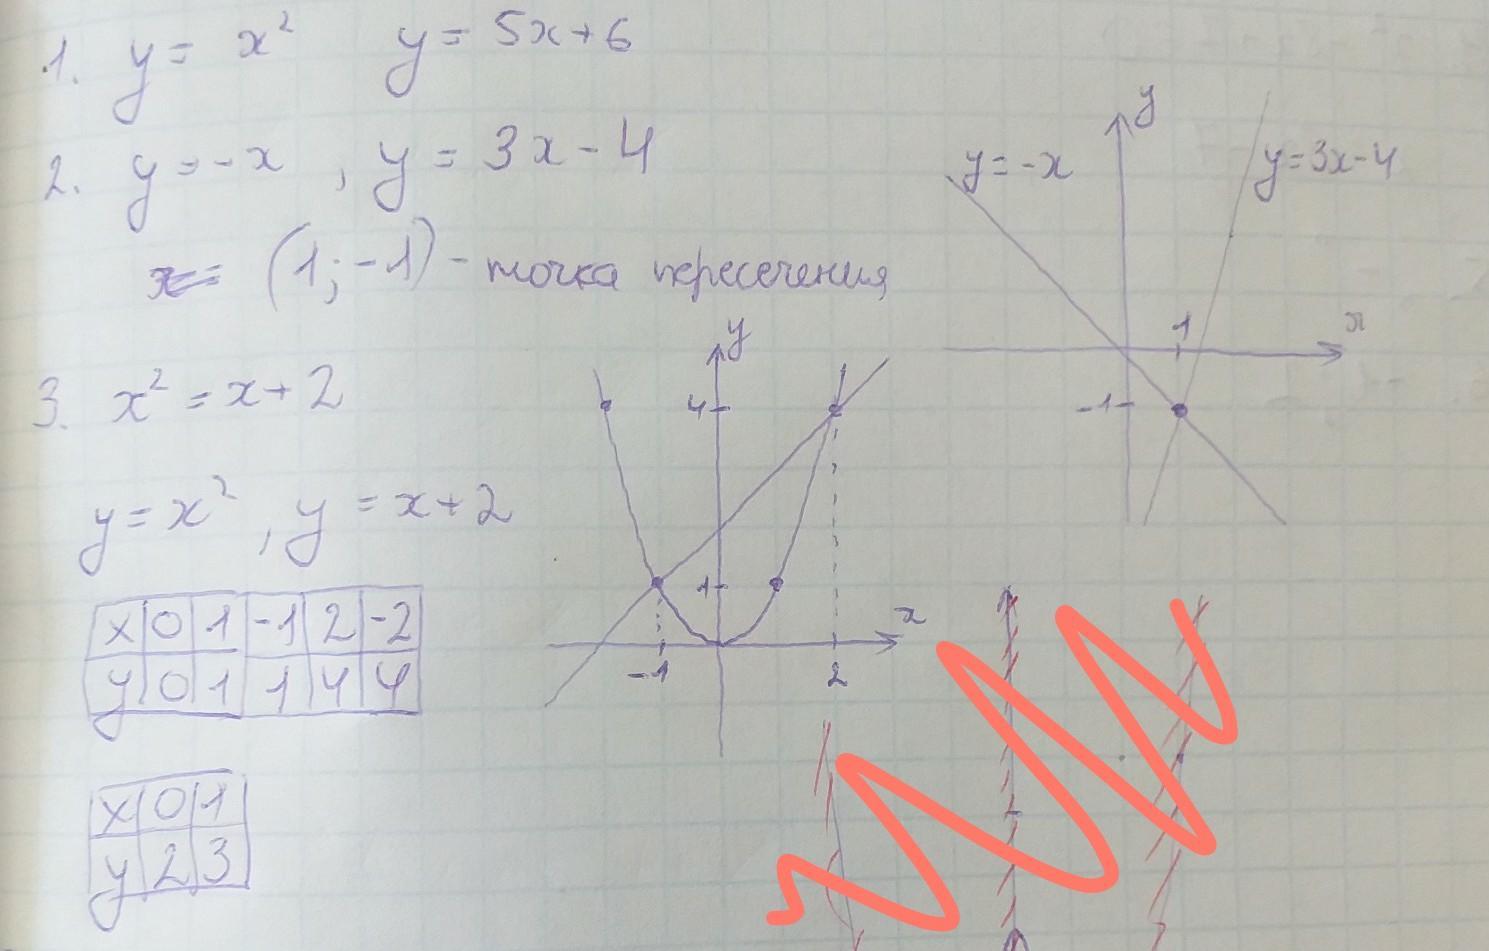 1. y = x² y = 5x+6
2. y = -x , y = 3x - 4
(1; -1) - точка пересечения
y
y = -x
y = 3x-4
1
x
-1
3. x² = x + 2
y
4
1
x
-1
2
y = x² , y = x + 2
x 0 1 -1 2 -2
y 0 1 1 4 4
x 0 1
y 2 3